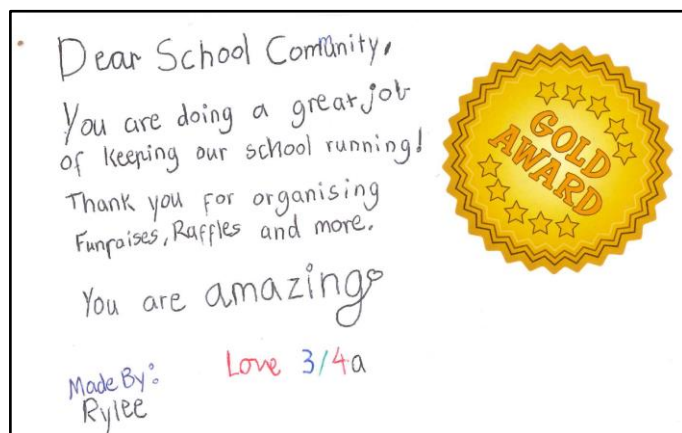 Dear School Community,
You are doing a great job
of keeping our school running!
Thank you for organising
Funraises, Raffles and more.
You are amazing
Love 3/4a
Made By:
Rylee
GOLD
AWARD